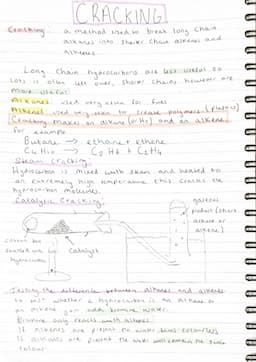 CRACKING
Cracking: a method used to break long chain
alkanes into shorter chain alkanes and
alkenes.
Long chain hydrocarbons are less useful so
lots is often left over, shorter chains however are
more useful.
Alkanes: used very often for fuels
Alkenes: used very often to create polymers (plastics)
Cracking makes an alkane (or H₂) and an alkene
for example
Butane → ethane + ethene
C₄H₁₀ → C₂H₆ + C₂H₄
Steam Cracking
Hydrocarbon is mixed with steam and heated to
an extremely high temperature this cracks the
hydrocarbon molecules.
Catalytic Cracking
gaseous
product (short
alkane or
alkene)
soaked in
hydrocarbon
Catalyst
Testing the difference between alkanes and alkenes
to test whether a hydrocarbon is an alkane or
an alkene you add bromine water.
Bromine only reacts with alkenes
If alkenes are present the water turns colourless
If alkanes are present the water will remain the same
colour